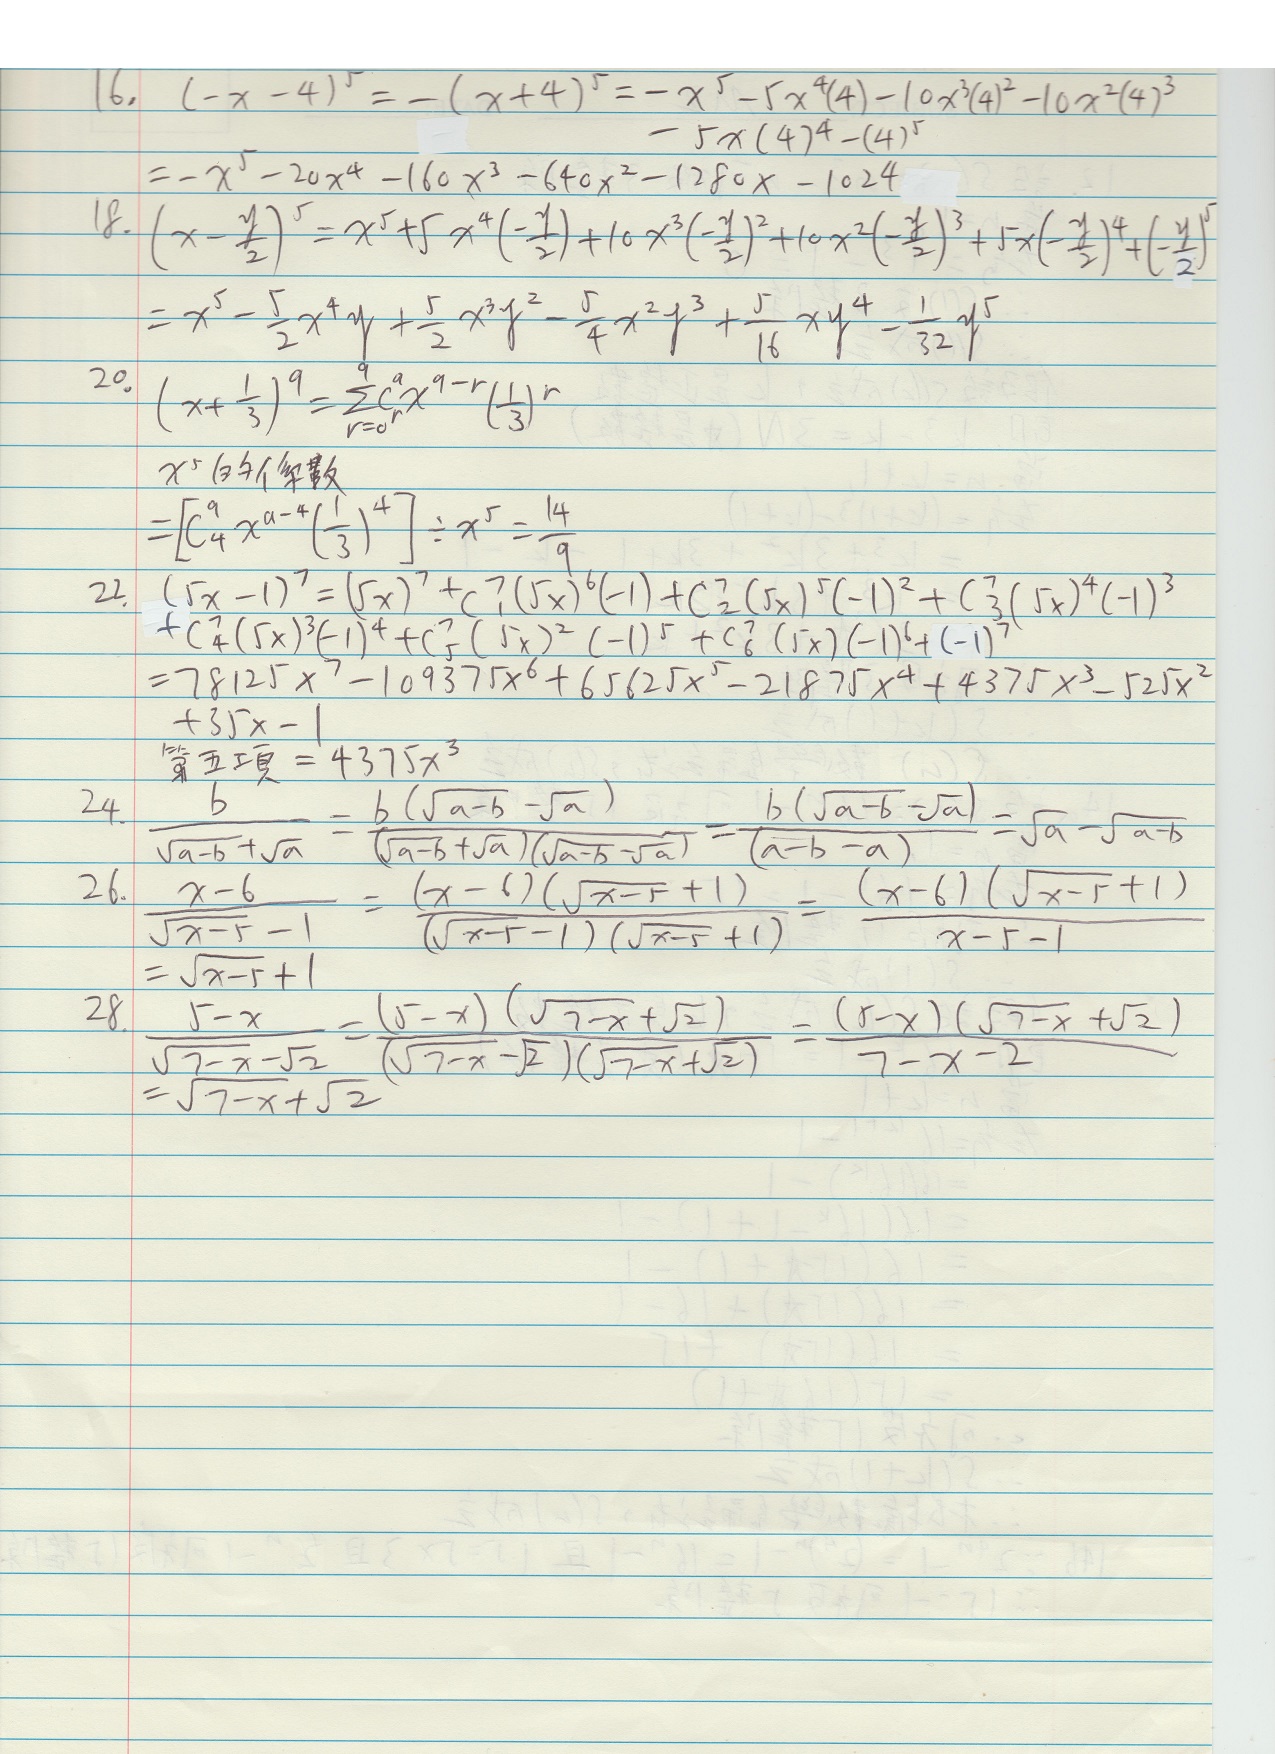 16. (-x-4)⁵ = -(x+4)⁵ = -x⁵ - 5x⁴(4) - 10x³(4)² - 10x²(4)³
- 5x(4)⁴ - (4)⁵
= -x⁵ - 20x⁴ - 160x³ - 640x² - 1280x - 1024
18. (x - y/2)⁵ = x⁵ + 5x⁴(-y/2) + 10x³(-y/2)² + 10x²(-y/2)³ + 5x(-y/2)⁴ + (-y/2)⁵
= x⁵ - 5/2 x⁴y + 5/2 x³y² - 5/4 x²y³ + 5/16 xy⁴ - 1/32 y⁵
20. (x + 1/3)⁹ = Σ_{r=0}^{9} C⁹ᵣ x⁹⁻ʳ (1/3)ʳ
x⁵的係數
= [C⁹₄ x⁹⁻⁴ (1/3)⁴] ÷ x⁵ = 14/9
22. (5x-1)⁷ = (5x)⁷ + C⁷₁(5x)⁶(-1) + C⁷₂(5x)⁵(-1)² + C⁷₃(5x)⁴(-1)³
+ C⁷₄(5x)³(-1)⁴ + C⁷₅(5x)²(-1)⁵ + C⁷₆(5x)(-1)⁶ + (-1)⁷
= 78125x⁷ - 109375x⁶ + 65625x⁵ - 21875x⁴ + 4375x³ - 525x²
+ 35x - 1
第五項 = 4375x³
24. b/(√(a-b) + √a) = b(√(a-b) - √a)/((√(a-b) + √a)(√(a-b) - √a)) = b(√(a-b) - √a)/(a-b-a) = √a - √(a-b)
26. (x-6)/(√(x-5) - 1) = (x-6)(√(x-5) + 1)/((√(x-5) - 1)(√(x-5) + 1)) = (x-6)(√(x-5) + 1)/(x-5-1)
= √(x-5) + 1
28. (5-x)/(√(7-x) - √2) = (5-x)(√(7-x) + √2)/((√(7-x) - √2)(√(7-x) + √2)) = (5-x)(√(7-x) + √2)/(7-x-2)
= √(7-x) + √2